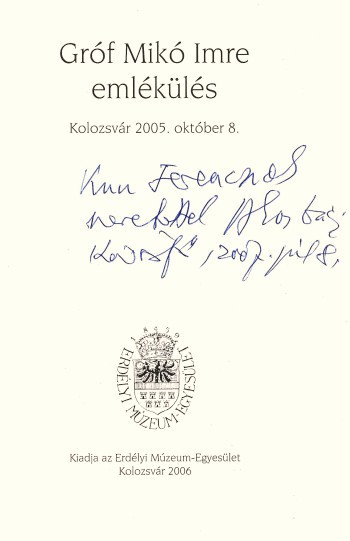 Gróf Mikó Imre
emlékülés
Kolozsvár 2005. október 8.
Kun Ferencnek
szeretettel
2007. júl. 8.
1859
ERDÉLYI MÚZEUM-EGYESÜLET
Kiadja az Erdélyi Múzeum-Egyesület
Kolozsvár 2006